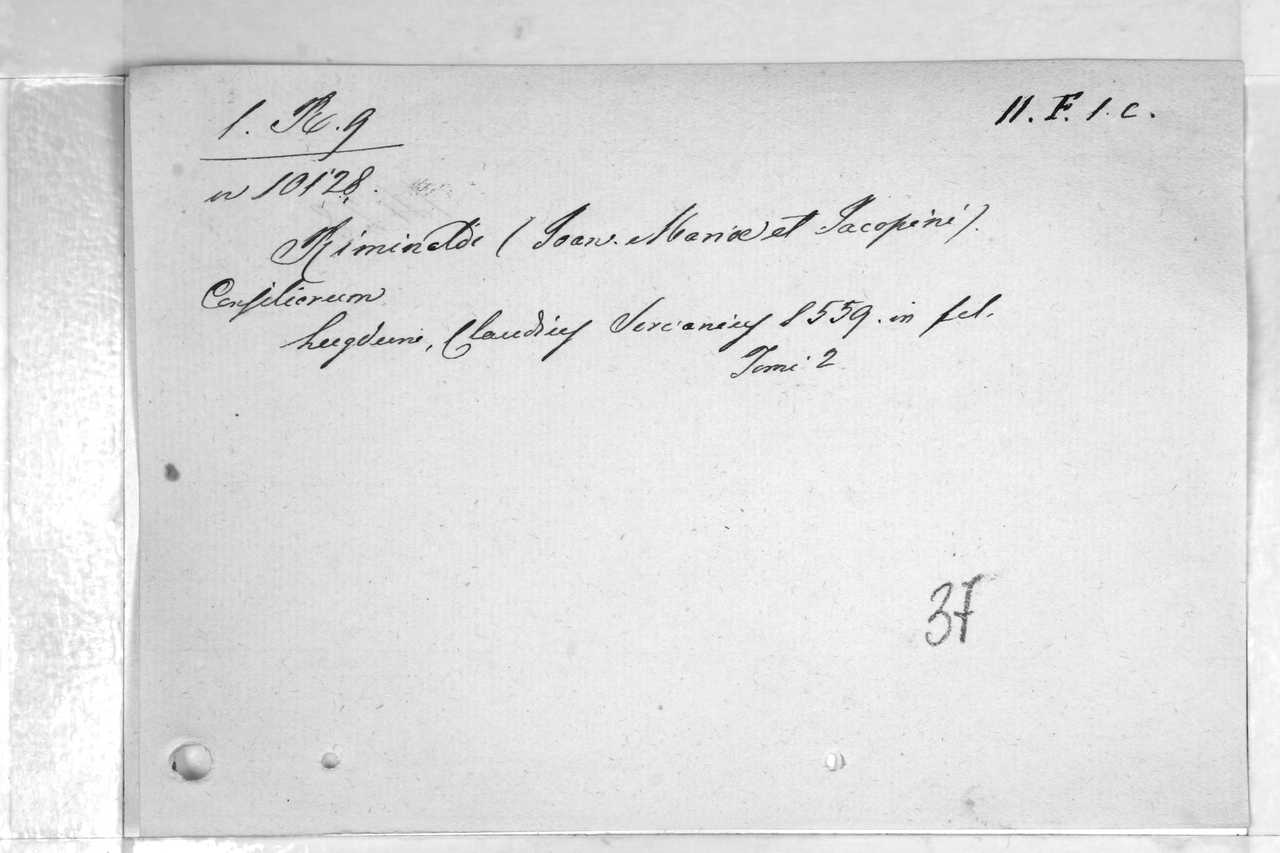 1. R. 9
11. F. 1. c.
in 10128.
Riminaldi (Joan. Mariæ et Jacopini).
Consiliorum
Lugduni, Claudius Servanius 1559. in fol.
Tomi 2
37